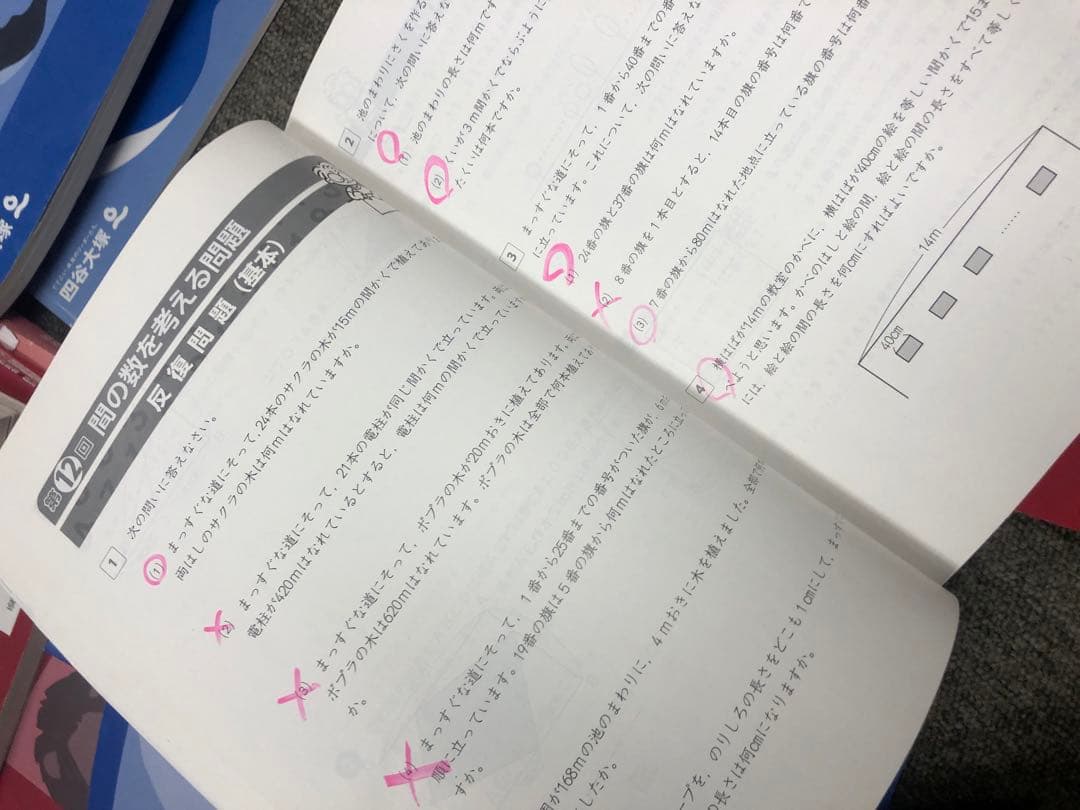 四谷大塚
四谷大塚
第12回 間の数を考える問題
反復問題(基本)
1 次の問いに答えなさい。
(1) まっすぐな道にそって,24本のサクラの木が15mの間かくで植えてあ
両はしのサクラの木は何mはなれていますか。
(2) まっすぐな道にそって,21本の電柱が同じ間かくで立っています。
電柱が420mはなれているとすると,電柱は何mの間かくで立っていま
(3) まっすぐな道にそって,ポプラの木が20mおきに植えてあります。
ポプラの木は620mはなれています。ポプラの木は全部で何本植えてあ
か。
(4) まっすぐな道にそって,1番から25番までの番号がついた旗が,
順に立っています。19番の旗は5番の旗から何mはなれたところに立
すか。
が168mの池のまわりに,4mおきに木を植えました。全部で
ましたか。
ープを,のりしろの長さをどこも1cmにして,まっす
の長さは何cmになりますか。
2 池のまわりにさくを作る
について,次の問いに答えな
(1) 池のまわりの長さは何mです
(2) くいが3m間かくでならぶように
たくいは何本ですか。
3 まっすぐな道にそって,1番から40番までの番
に立っています。これについて,次の問いに答え
(1) 24番の旗と37番の旗は何mはなれていますか。
(2) 8番の旗を1本目とすると,14本目の旗の番号は何番で
(3) 7番の旗から80mはなれた地点に立っている旗の番号は何番
4 横はばが14mの教室のかべに,横はばが40cmの絵を等しい間かくで15ま
ようと思います。かべのはしと絵の間,絵と絵の間の長さをすべて等しく
には,絵と絵の間の長さを何cmにすればよいですか。
14m
40cm